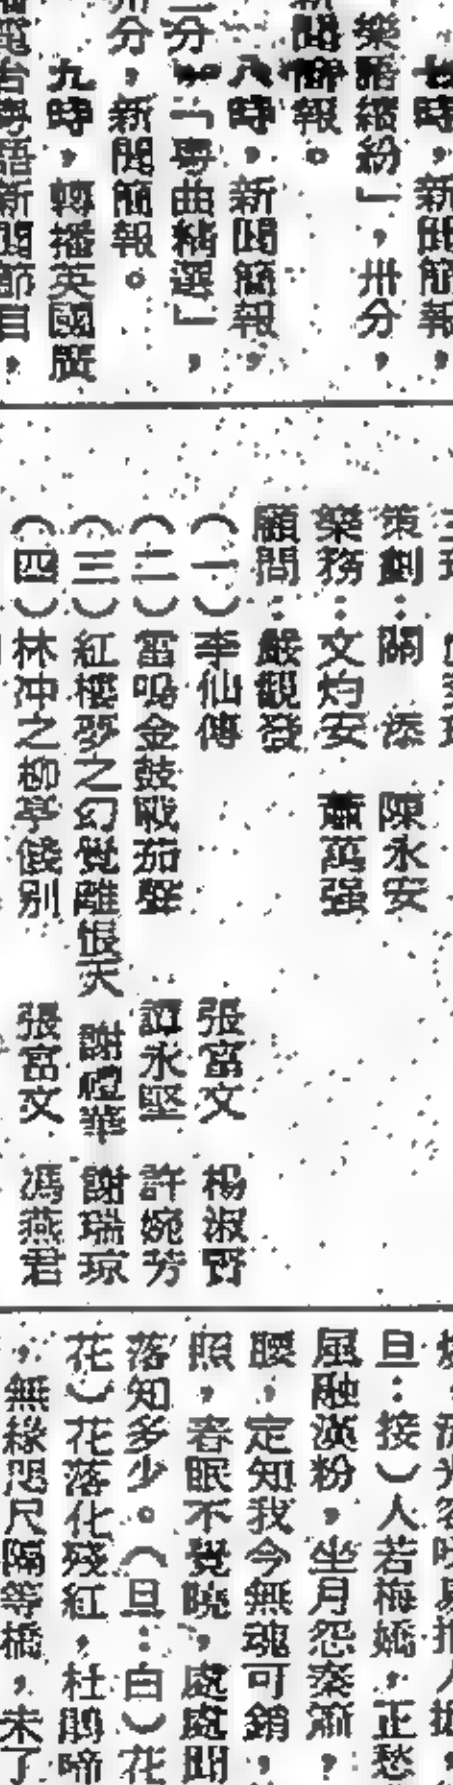 七時，新聞簡報，
樂韻繽紛」，卅分，
新聞簡報。
八時，新聞簡報，
二分，「粵曲精選」，
卅分，新聞簡報。
九時，轉播英國廣
播電台粵語新聞節目，
策劃：關　添　陳永安
樂務：文灼安　蕭萬强
顧問：嚴觀發
（一）李仙傳　張富文　楊淑野
（二）雷鳴金鼓戰茄聲　譚永堅　許婉芳
（三）紅樓夢之幻覺離恨天　謝禮華　謝瑞琼
（四）林冲之柳亭餞别　張富文　馮燕君
旦：接）人若梅嬌，正愁
風融漢粉，坐月怨秦簫，
腰，定知我今無魂可銷，
照，春眠不覺曉，處處聞
落知多少。（旦：白）花
花）花落化殘紅，杜鵑啼
，無緣咫尺隔等橋，未了